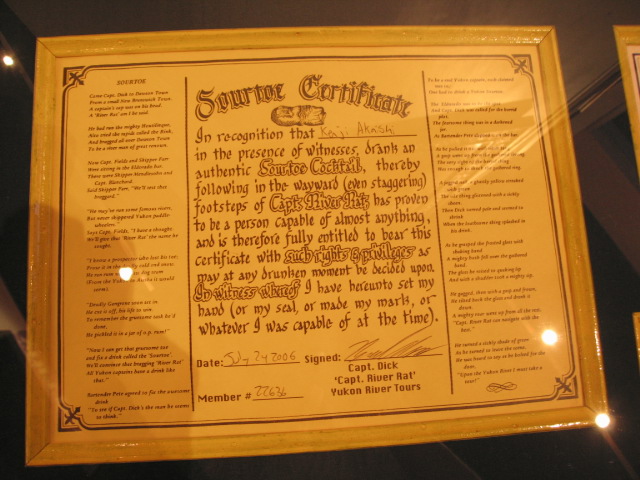 SOURTOE
Came Capt. Dick to Dawson Town
From a small New Brunswick Town.
A captain's cap was on his head.
A 'River Rat' am I he said.
He had run the mighty
Also tried the rapids called the Rink,
And bragged all over Dawson Town
To be a river man of great renown.
Now Capt. Fields and Skipper Farr
Were sitting in the Eldorado bar.
There were Skipper Hendleschs and
Capt. Blanchard.
Said Skipper Farr, "We'll test that
braggard."
"He may've run some famous rivers,
But never skippered Yukon paddle-
wheelers."
Says Capt. Fields, "I have a thought
We'll give that 'River Rat' the name he
sought."
"I know a prospector who lost his toe;
Froze it in the deadly cold and snow.
He was run dog team
(From the Yukon he would
swim).
"Deadly Gangrene soon set in
He cut it off, his life to win
To remember the gruesome task he'd
done,
He pickled it in a jar of o.p. rum!"
"Now I can get that gruesome toe
and fix a drink called the 'Sourtoe'.
We'll convince that bragging 'River Rat'
All Yukon captains have a drink like
that."
Bartender Pete agreed to fix the awesome
drink
"To see if Capt. Dick's the man he seems
to think."
Sourtoe Certificate
In recognition that Kenji Akashi
in the presence of witnesses, drank an
authentic Sourtoe Cocktail, thereby
following in the wayward (even staggering)
footsteps of Capt. River Rat, has proven
to be a person capable of almost anything,
and is therefore fully entitled to bear this
certificate with such rights & privileges as
may at any drunken moment be decided upon.
In witness whereof I have hereunto set my
hand (or my seal, or made my mark, or
whatever I was capable of at the time).
Date: July 24 2006 Signed:
Capt. Dick
'Capt. River Rat'
Yukon River Tours
Member # 22636
To be a real Yukon captain,
One had to drink a Yukon
The Eldorado
Capt. Dick
The fearsome thing was in a darkened
jar.
As Bartender Pete
As he
A gasp went up from the
The very sight of the
Was enough to
A jagged
with green
The thing glistened with a sickly
sheen.
Then Dick turned pale and seemed to
shrink
When the loathsome thing splashed in
his drink.
As he grasped the frosted glass with
shaking hand
A mighty hush fell over the gathered
band.
The glass he raised to quaking lip
And with a shudder took a mighty sip.
He gagged, then with a pop and foam,
He tilted back the glass and drank it
down.
A mighty roar went up from all the rest,
"Capt. River Rat can navigate with the
best."
He turned a sickly shade of green
As he turned to leave the scene,
He was heard to say as he bolted for the
door
"Upon the Yukon River I must take a
tour!"